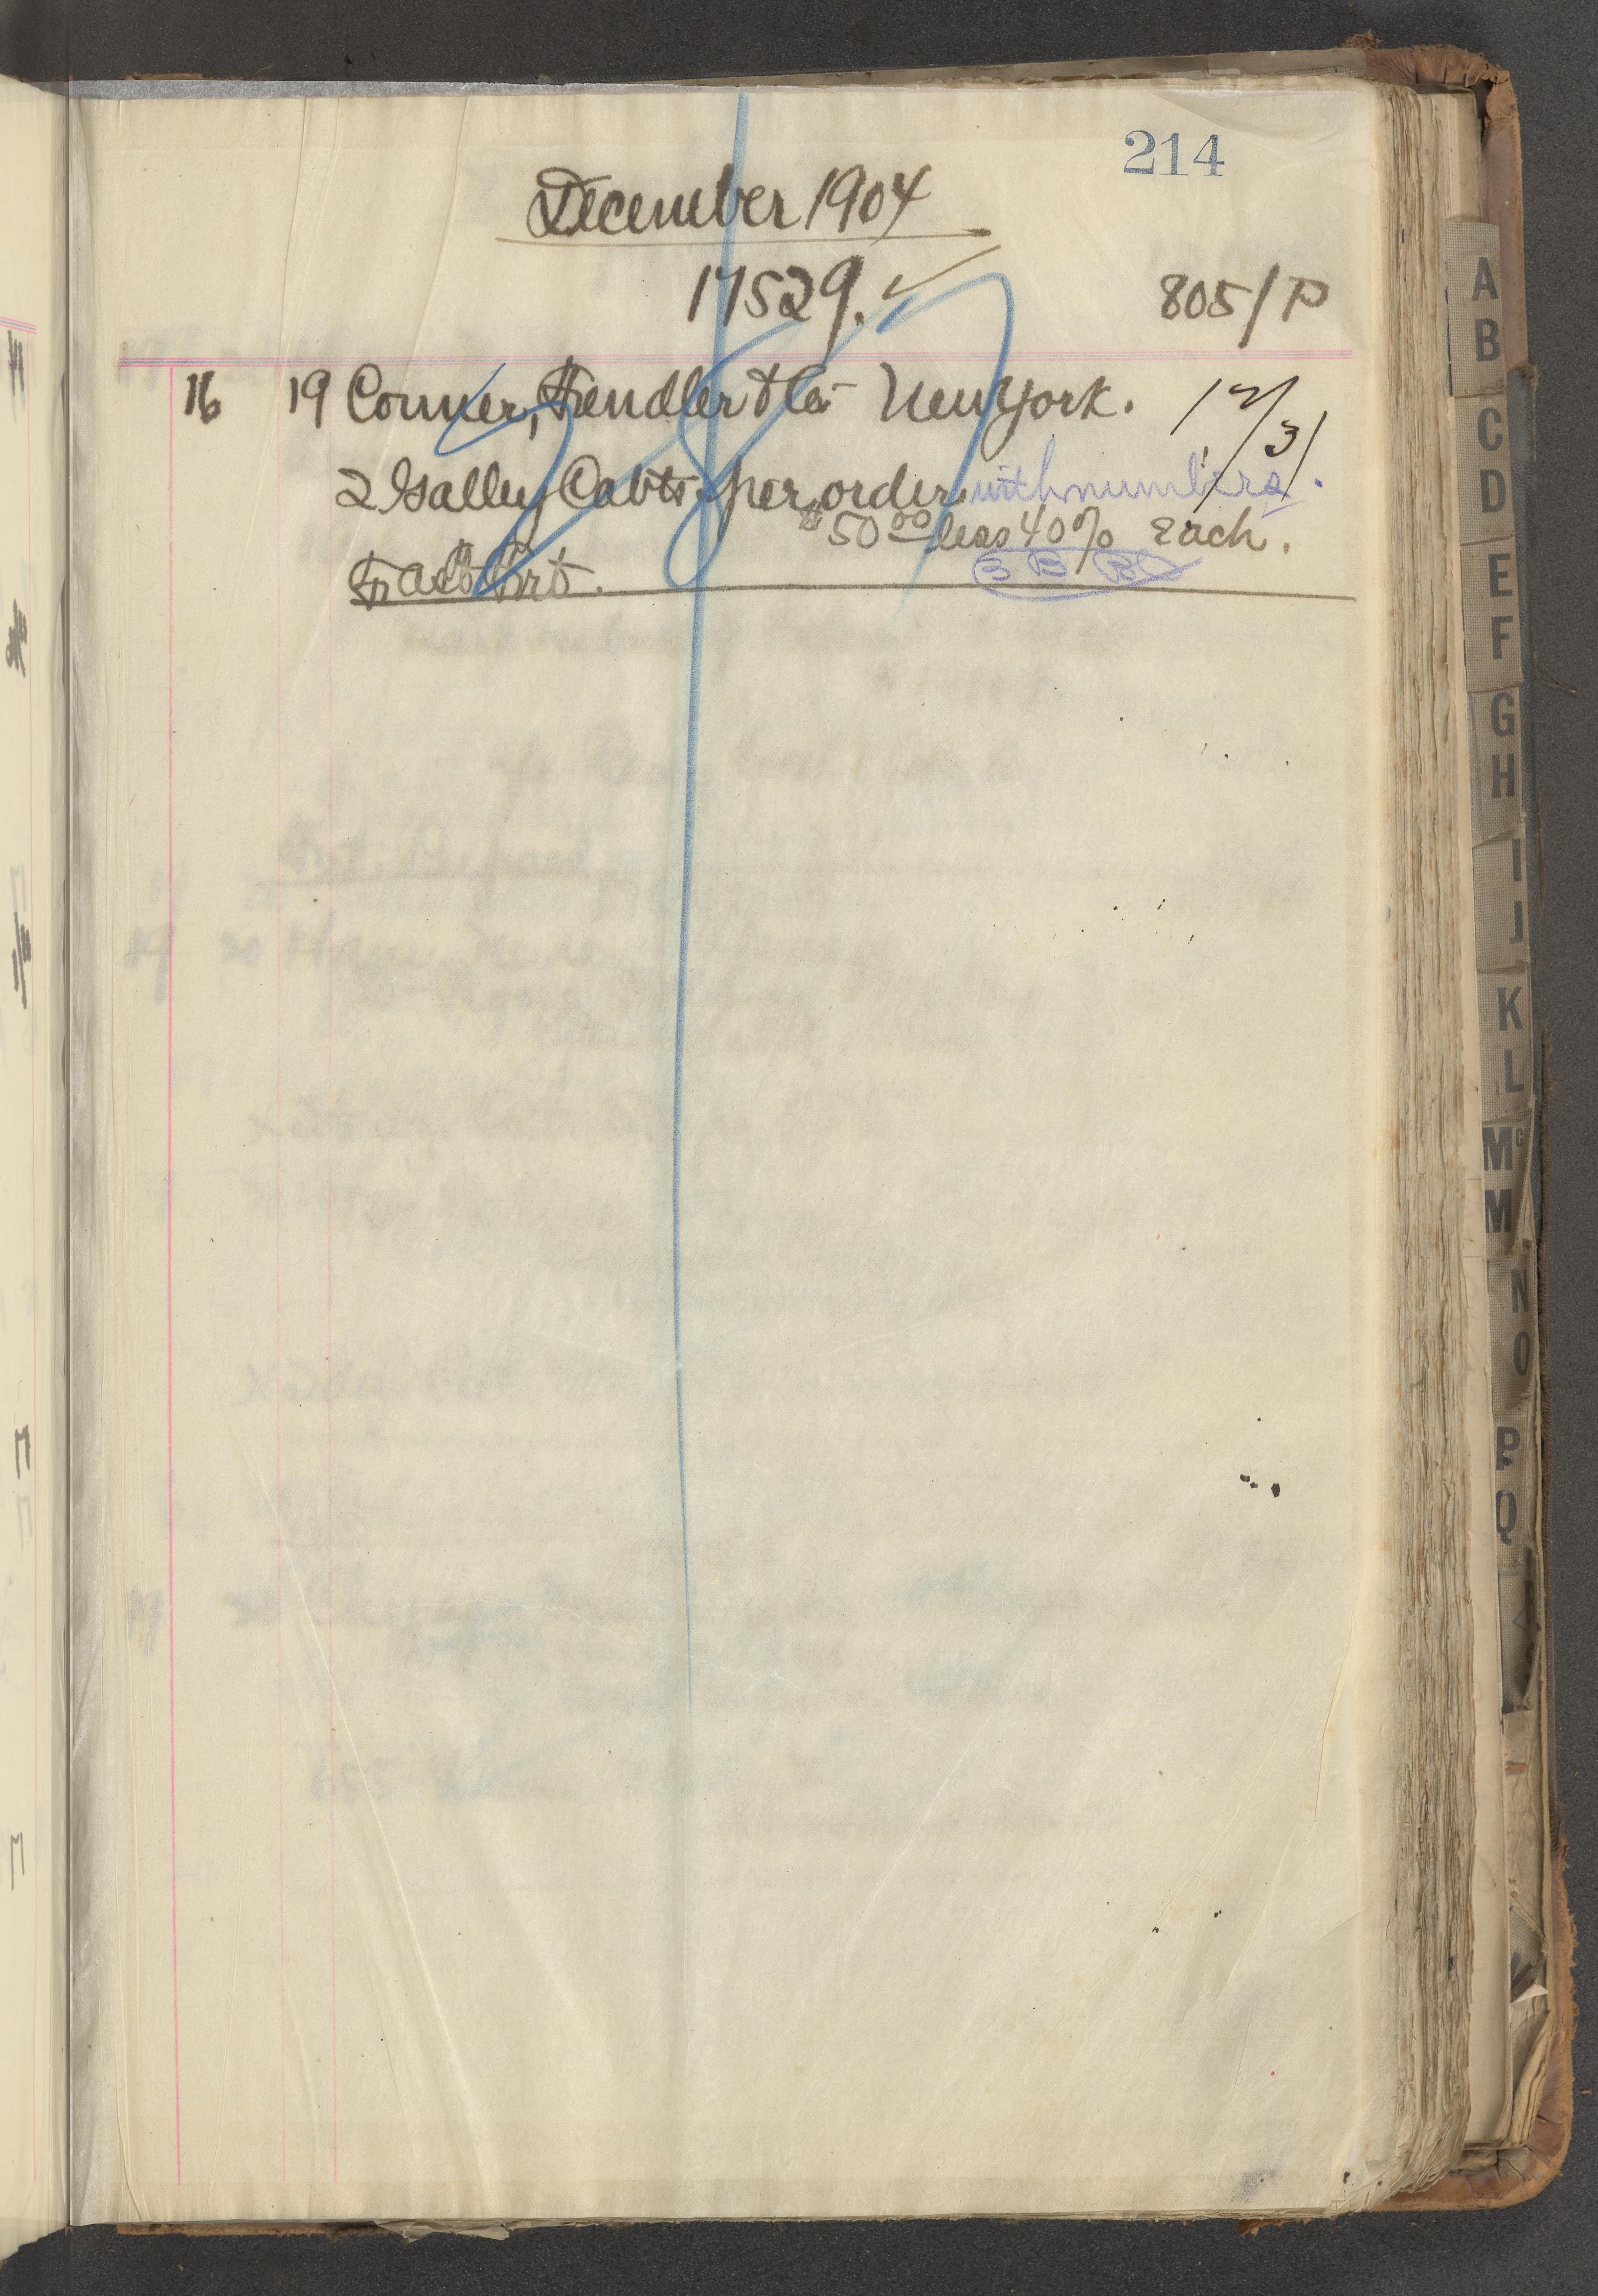 214
December 1904
17529. ✓ 805/P
16 19 Conner, Fendler & Co- New York. 12/31
2 Galley Cabts. per order. with numbers.
$50 00 less 40% Each.
Fast Frt.
A
B
C
D
E
F
G
H
I
J
K
L
Mc
M
N
O
P
Q